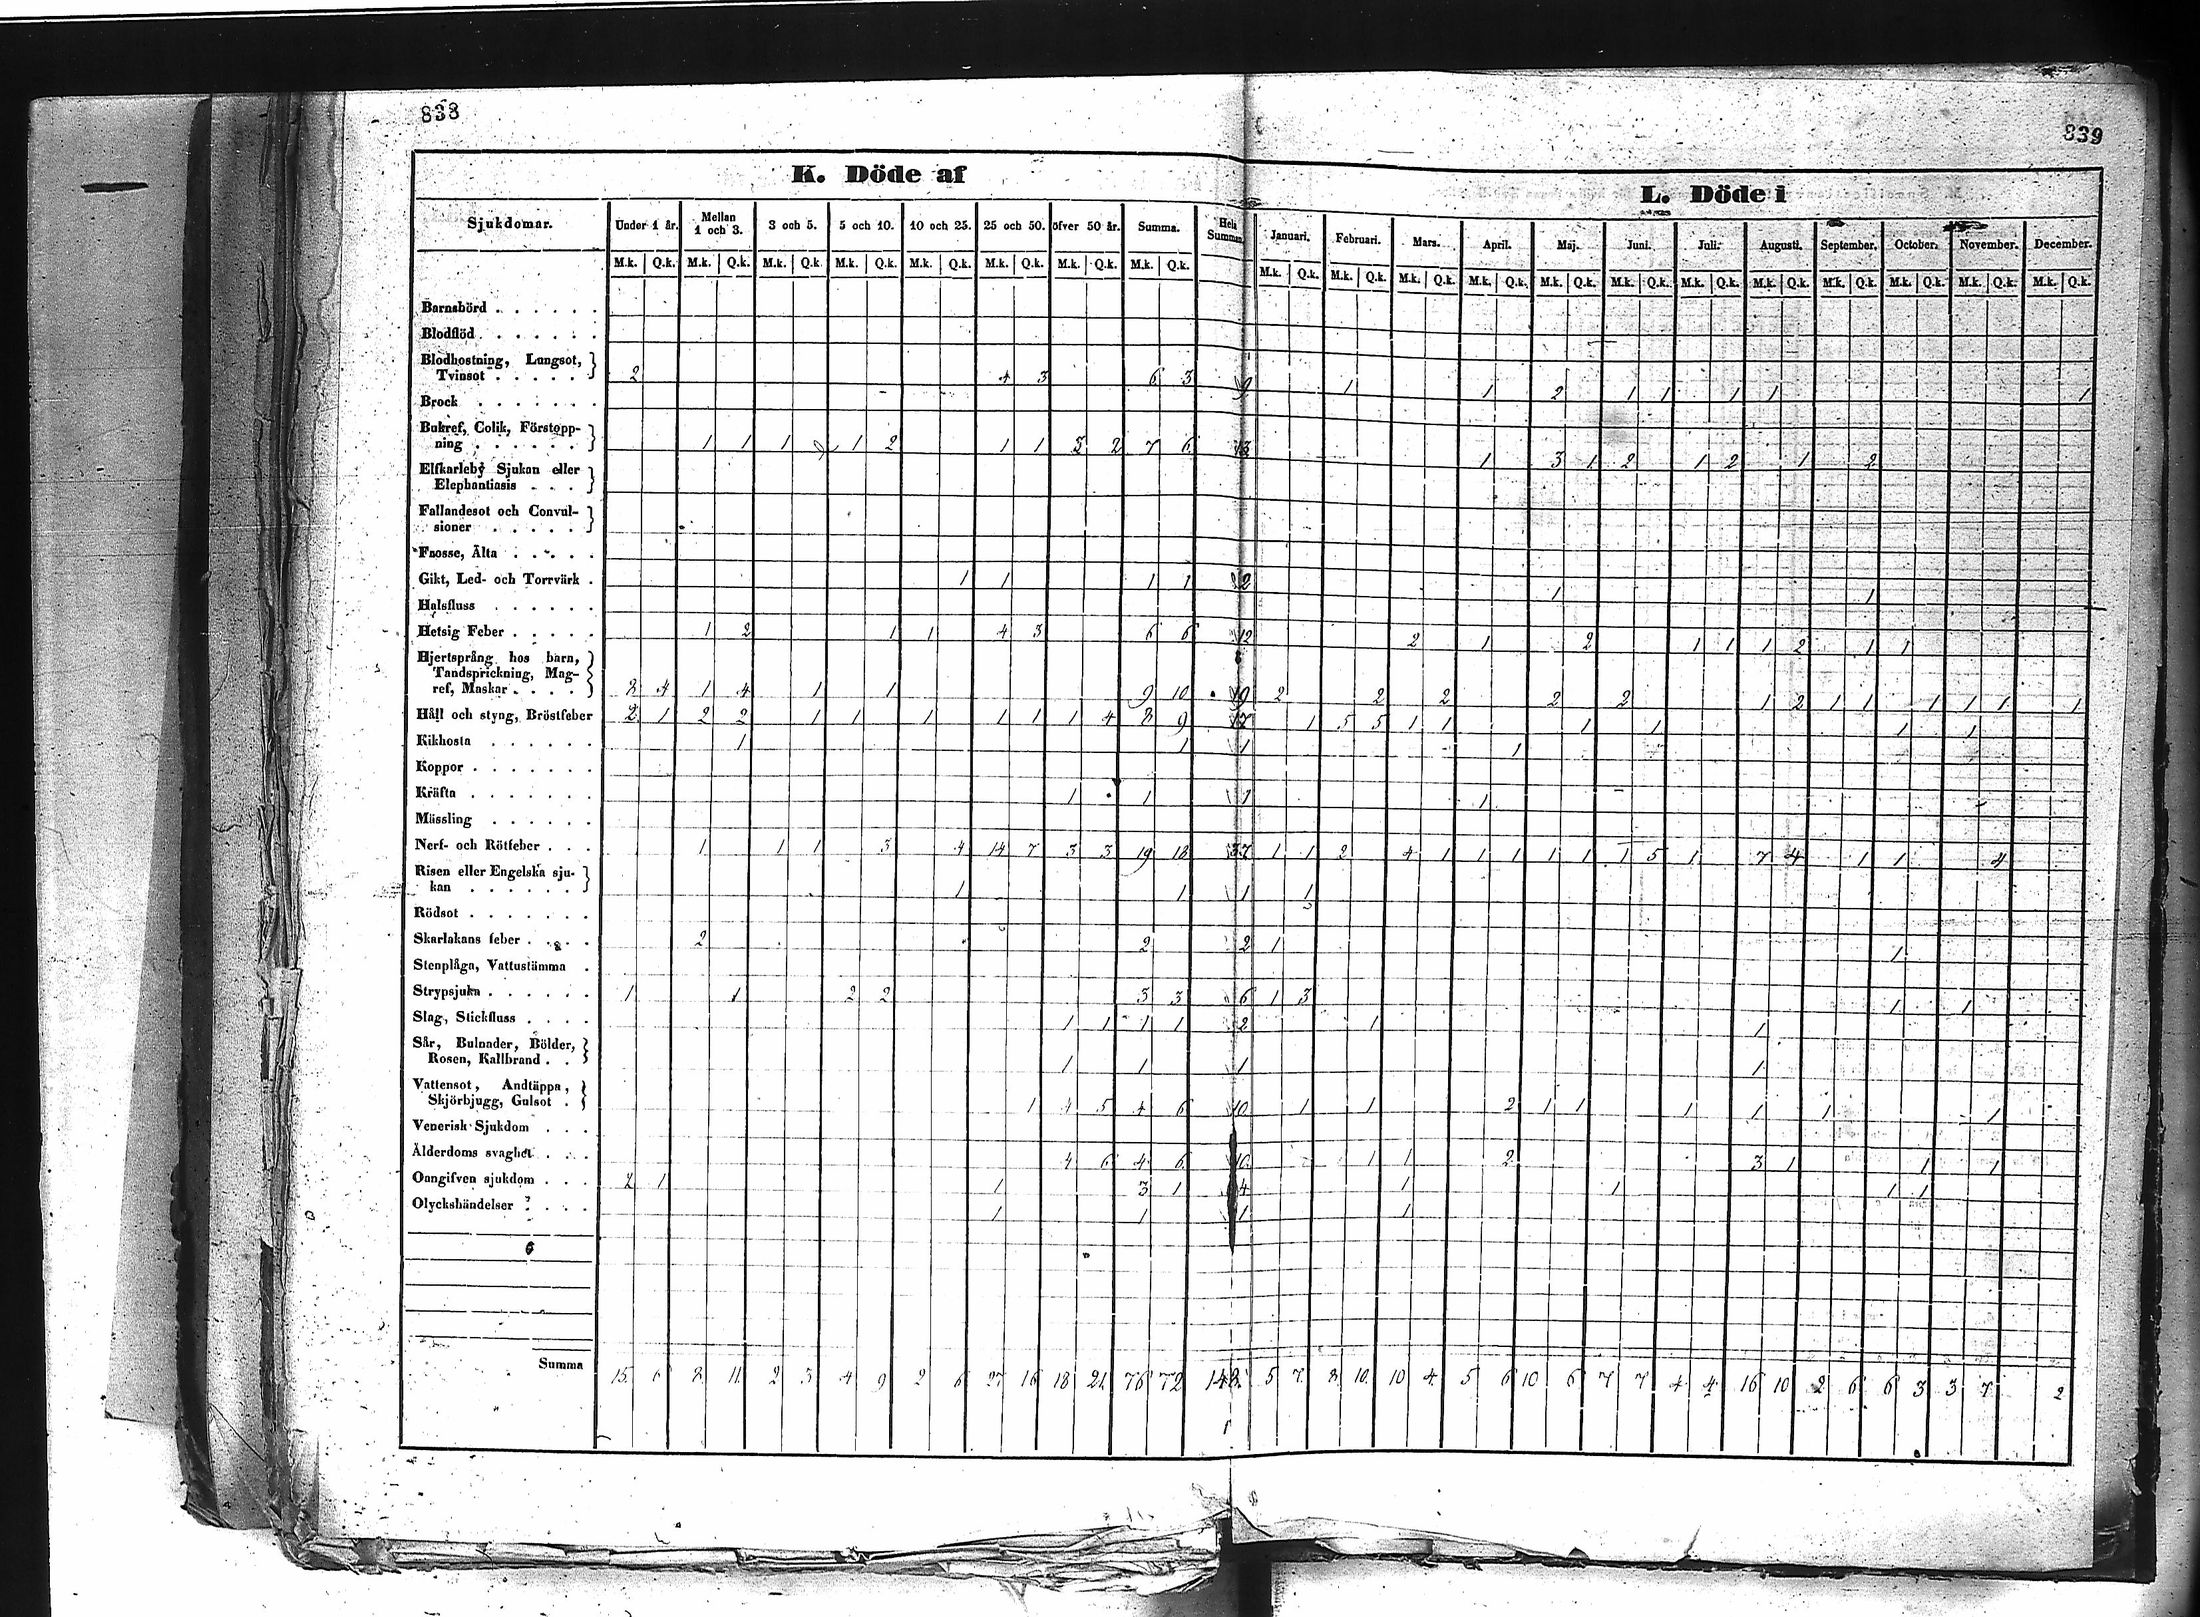 838
839
K. Döde af
L. Döde i
Sjukdomar. Under 1 år. Mellan 1 och 3. 3 och 5. 5 och 10. 10 och 25. 25 och 50. öfver 50 år. Summa. Hela Summan. Januari. Februari. Mars. April. Maj. Juni. Juli. Augusti. September. October. November. December.
M.k. Q.k. M.k. Q.k. M.k. Q.k. M.k. Q.k. M.k. Q.k. M.k. Q.k. M.k. Q.k. M.k. Q.k. M.k. Q.k. M.k. Q.k. M.k. Q.k. M.k. Q.k. M.k. Q.k. M.k. Q.k. M.k. Q.k. M.k. Q.k. M.k. Q.k. M.k. Q.k. M.k. Q.k. M.k. Q.k.
Barnsbörd
Blodflöd
Blodhostning, Lungsot,
Tvinsot 2 4 3 6 3 9 1 1 2 1 1 1 1 1
Brock
Bukref, Colik, Förstopp-
ning 1 1 1 1 2 1 1 3 2 7 6 13 1 3 1 2 1 2 1 2
Elfkarleby Sjukan eller
Elephantiasis
Fallandesot och Convul-
sioner
Fnosse, Älta
Gikt, Led- och Torrvärk 1 1 1 1 2 1 1
Halsfluss
Hetsig Feber 1 2 1 1 4 3 6 6 12 2 1 2 1 1 1 2 1 1
Hjertsprång hos barn,
Tandsprickning, Mag-
ref, Maskar 4 1 4 1 1 9 10 19 2 2 2 2 2 1 2 1 1 1 1 1 1
Håll och styng, Bröstfeber 2 1 2 2 1 1 1 1 1 1 4 8 9 17 1 5 5 1 1 1 1 1 1
Kikhosta 1 1 1 1
Koppor
Kräfta 1 1 1 1
Mässling
Nerf- och Rötfeber 1 1 1 3 4 14 7 3 3 19 18 37 1 1 2 4 1 1 1 1 1 1 5 1 7 4 1 1 4
Risen eller Engelska sju-
kan 1 1 1 1
Rödsot
Skarlakans feber 2 2 2 1 1
Stenplåga, Vattustämma
Strypsjuka 1 1 2 2 3 3 6 1 3 1 1
Slag, Stickfluss 1 1 1 1 2 1 1
Sår, Bulnader, Bölder,
Rosen, Kallbrand 1 1 1 1
Vattensot, Andtäppa,
Skjörbjugg, Gulsot 1 4 5 4 6 10 1 1 2 1 1 1 1 1 1
Venerisk Sjukdom
Ålderdoms svaghet 4 6 4 6 10 1 1 2 3 1 1 1
Oangifven sjukdom 2 1 1 3 1 4 1 1 1 1
Olyckshändelser 1 1 1 1
Summa 15 6 8 11 2 3 4 9 2 6 27 16 18 21 76 72 148 5 7 8 10 10 4 5 6 10 6 7 7 4 4 16 10 2 6 6 3 3 7 2